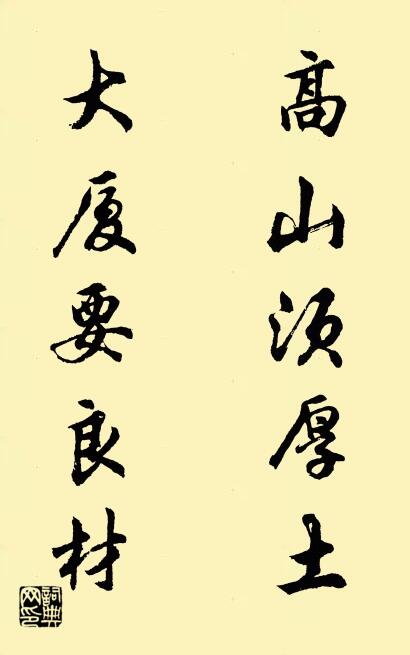 高山須厚土
大厦要良材
詞典网印